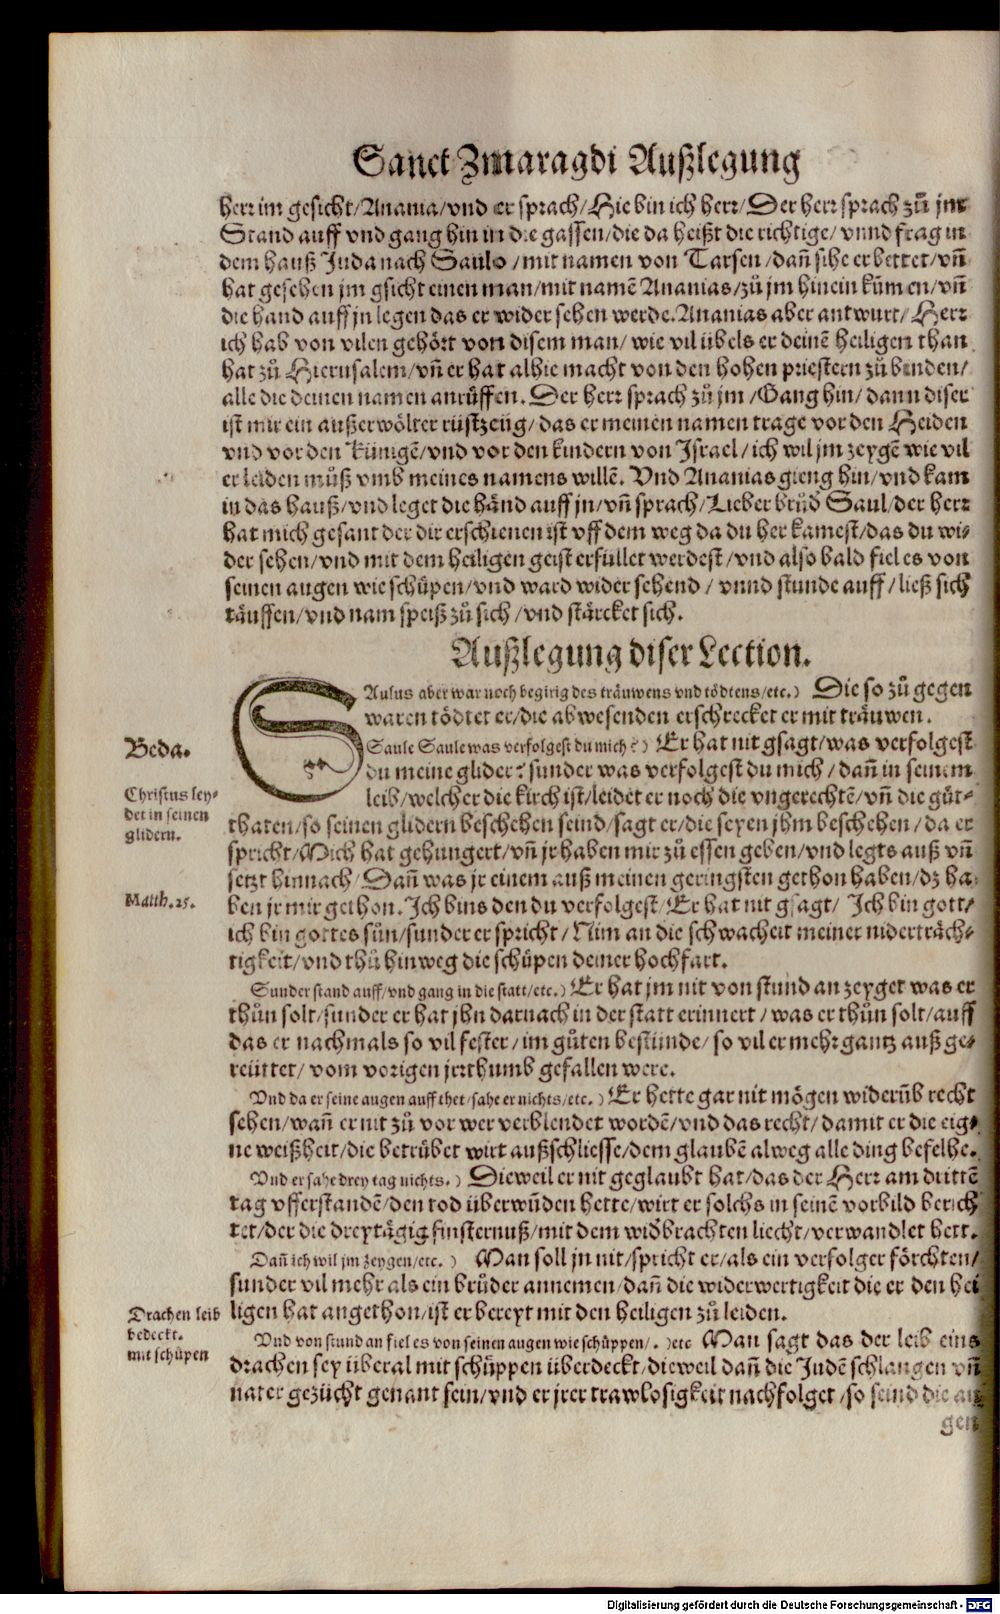 Sanct Zmaragdi Außlegung
herr im gesicht/Anania/vnd er sprach/Hie bin ich herr/Der herr sprach zů jm
Stand auff vnd gang hin in die gassen/die da heißt die richtige/vnnd frag in
dem hauß Juda nach Saulo/mit namen von Tarsen/dañ sihe er bettet/vñ
hat gesehen jm gsicht einen man/mit namẽ Ananias/zů jm hinein kům̃en/vñ
die hand auff jn legen das er wider sehen werde. Ananias aber antwurt/Herr
ich hab von vilen gehört von disem man/wie vil übels er deinẽ heiligen than
hat zů Hierusalem/vñ er hat alhie macht von den hohen priestern zů binden/
alle die deinen namen anrüffen. Der herr sprach zů jm/Gang hin/dann diser
ist mir ein außerwölter rüstzeüg/das er meinen namen trage vor den Heiden
vnd vor den Künigẽ/vnd vor den kindern von Israel/ich wil jm zeygẽ wie vil
er leiden můß vmb meines namens willẽ. Vnd Ananias gieng hin/vnd kam
in das hauß/vnd leget die händ auff jn/vñ sprach/Lieber brůd̃ Saul/der herr
hat mich gesant der dir erschienen ist vff dem weg da du her kamest/das du wi⸗
der sehen/vnd mit dem heiligen geist erfüllet werdest/vnd also bald fiel es von
seinen augen wie schüpen/vnd ward wider sehend/vnnd stunde auff/ließ sich
täuffen/vnd nam speiß zů sich/vnd stärcket sich.
Außlegung diser Lection.
SAulus aber war noch begirig des träuwens vnd tödtens/etc.) Die so zů gegen
waren tödtet er/die abwesenden erschrecket er mit träuwen.
Saule Saule was verfolgest du mich?) Er hat nit gsagt/was verfolgest
Beda.
du meine glider? sunder was verfolgest du mich/dañ in seinem
leib/welcher die kirch ist/leidet er noch die vngerechtẽ/vñ die gůt⸗
Christus ley⸗
det in seinen
glidern.
thaten/so seinen glidern beschehen seind/sagt er/die seyen jhm beschehen/da er
spricht/Mich hat gehungert/vñ jr haben mir zů essen geben/vnd legts auß vñ
setzt hinnach/Dañ was jr einem auß meinen geringsten gethon haben/dz ha⸗
Matth.25.
ben jr mir gethon. Ich bins den du verfolgest/Er hat nit gsagt/Ich bin gott/
ich bin gottes sůn/sunder er spricht/Nim an die schwacheit meiner niderträch⸗
tigkeit/vnd thů hinweg die schüpen deiner hochfart.
Sunder stand auff/vnd gang in die statt/etc.) Er hat jm nit von stund an zeyget was er
thůn solt/sunder er hat jhn darnach in der statt erinnert/was er thůn solt/auff
das er nachmals so vil fester/im gůten bestünde/so vil er mehr gantz auß ge⸗
reüttet/vom vorigen jrrthumb gefallen were.
Vnd da er seine augen auff thet/sahe er nichts/etc.) Er hette gar nit mögen widerũb recht
sehen/wañ er nit zů vor wer verblendet wordẽ/vnd das recht/damit er die eig⸗
ne weißheit/die betrübet wirt außschliesse/dem glaubẽ alweg alle ding befelhe.
Vnd er sahe drey tag nichts.) Dieweil er nit geglaubt hat/das der Herr am drittẽ
tag vfferstandẽ/den tod überwũden hette/wirt er solchs in seinẽ vorbild berich
tet/der die dreytägig finsternuß/mit dem wid̃brachten liecht/verwandlet hett.
Dañ ich wil jm zeygen/etc.) Man soll jn nit/spricht er/als ein verfolger förchten/
sunder vil mehr als ein brůder annemen/dañ die widerwertigkeit die er den hei
ligen hat angethon/ist er bereyt mit den heiligen zů leiden.
Drachen leib
bedeckt.
mit schüpen
Vnd von stund an fiel es von seinen augen wie schüppen/. )etc Man sagt das der leib eins
drachen sey überal mit schüppen überdeckt/dieweil dañ die Judẽ schlangen vñ
nater gezücht genant sein/vnd er jrer trawlosigkeit nachfolget/so seind die au
gen
Digitalisierung gefördert durch die Deutsche Forschungsgemeinschaft - DFG